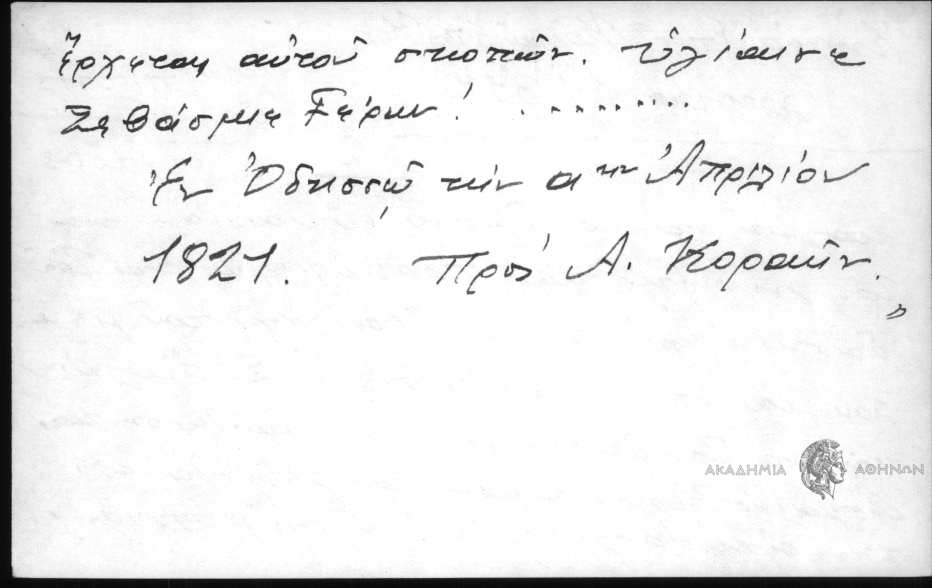 ἔρχεται αὐτοῦ σκοπῶν. Ὑγίαινε
Σεβάσμιε Γέρων! .........
Ἐν Ὀδησσῷ τὴν α την Ἀπριλίου
1821. Πρὸς Α. Κοραῆν.
"
ΑΚΑΔΗΜΙΑ ΑΘΗΝΩΝ